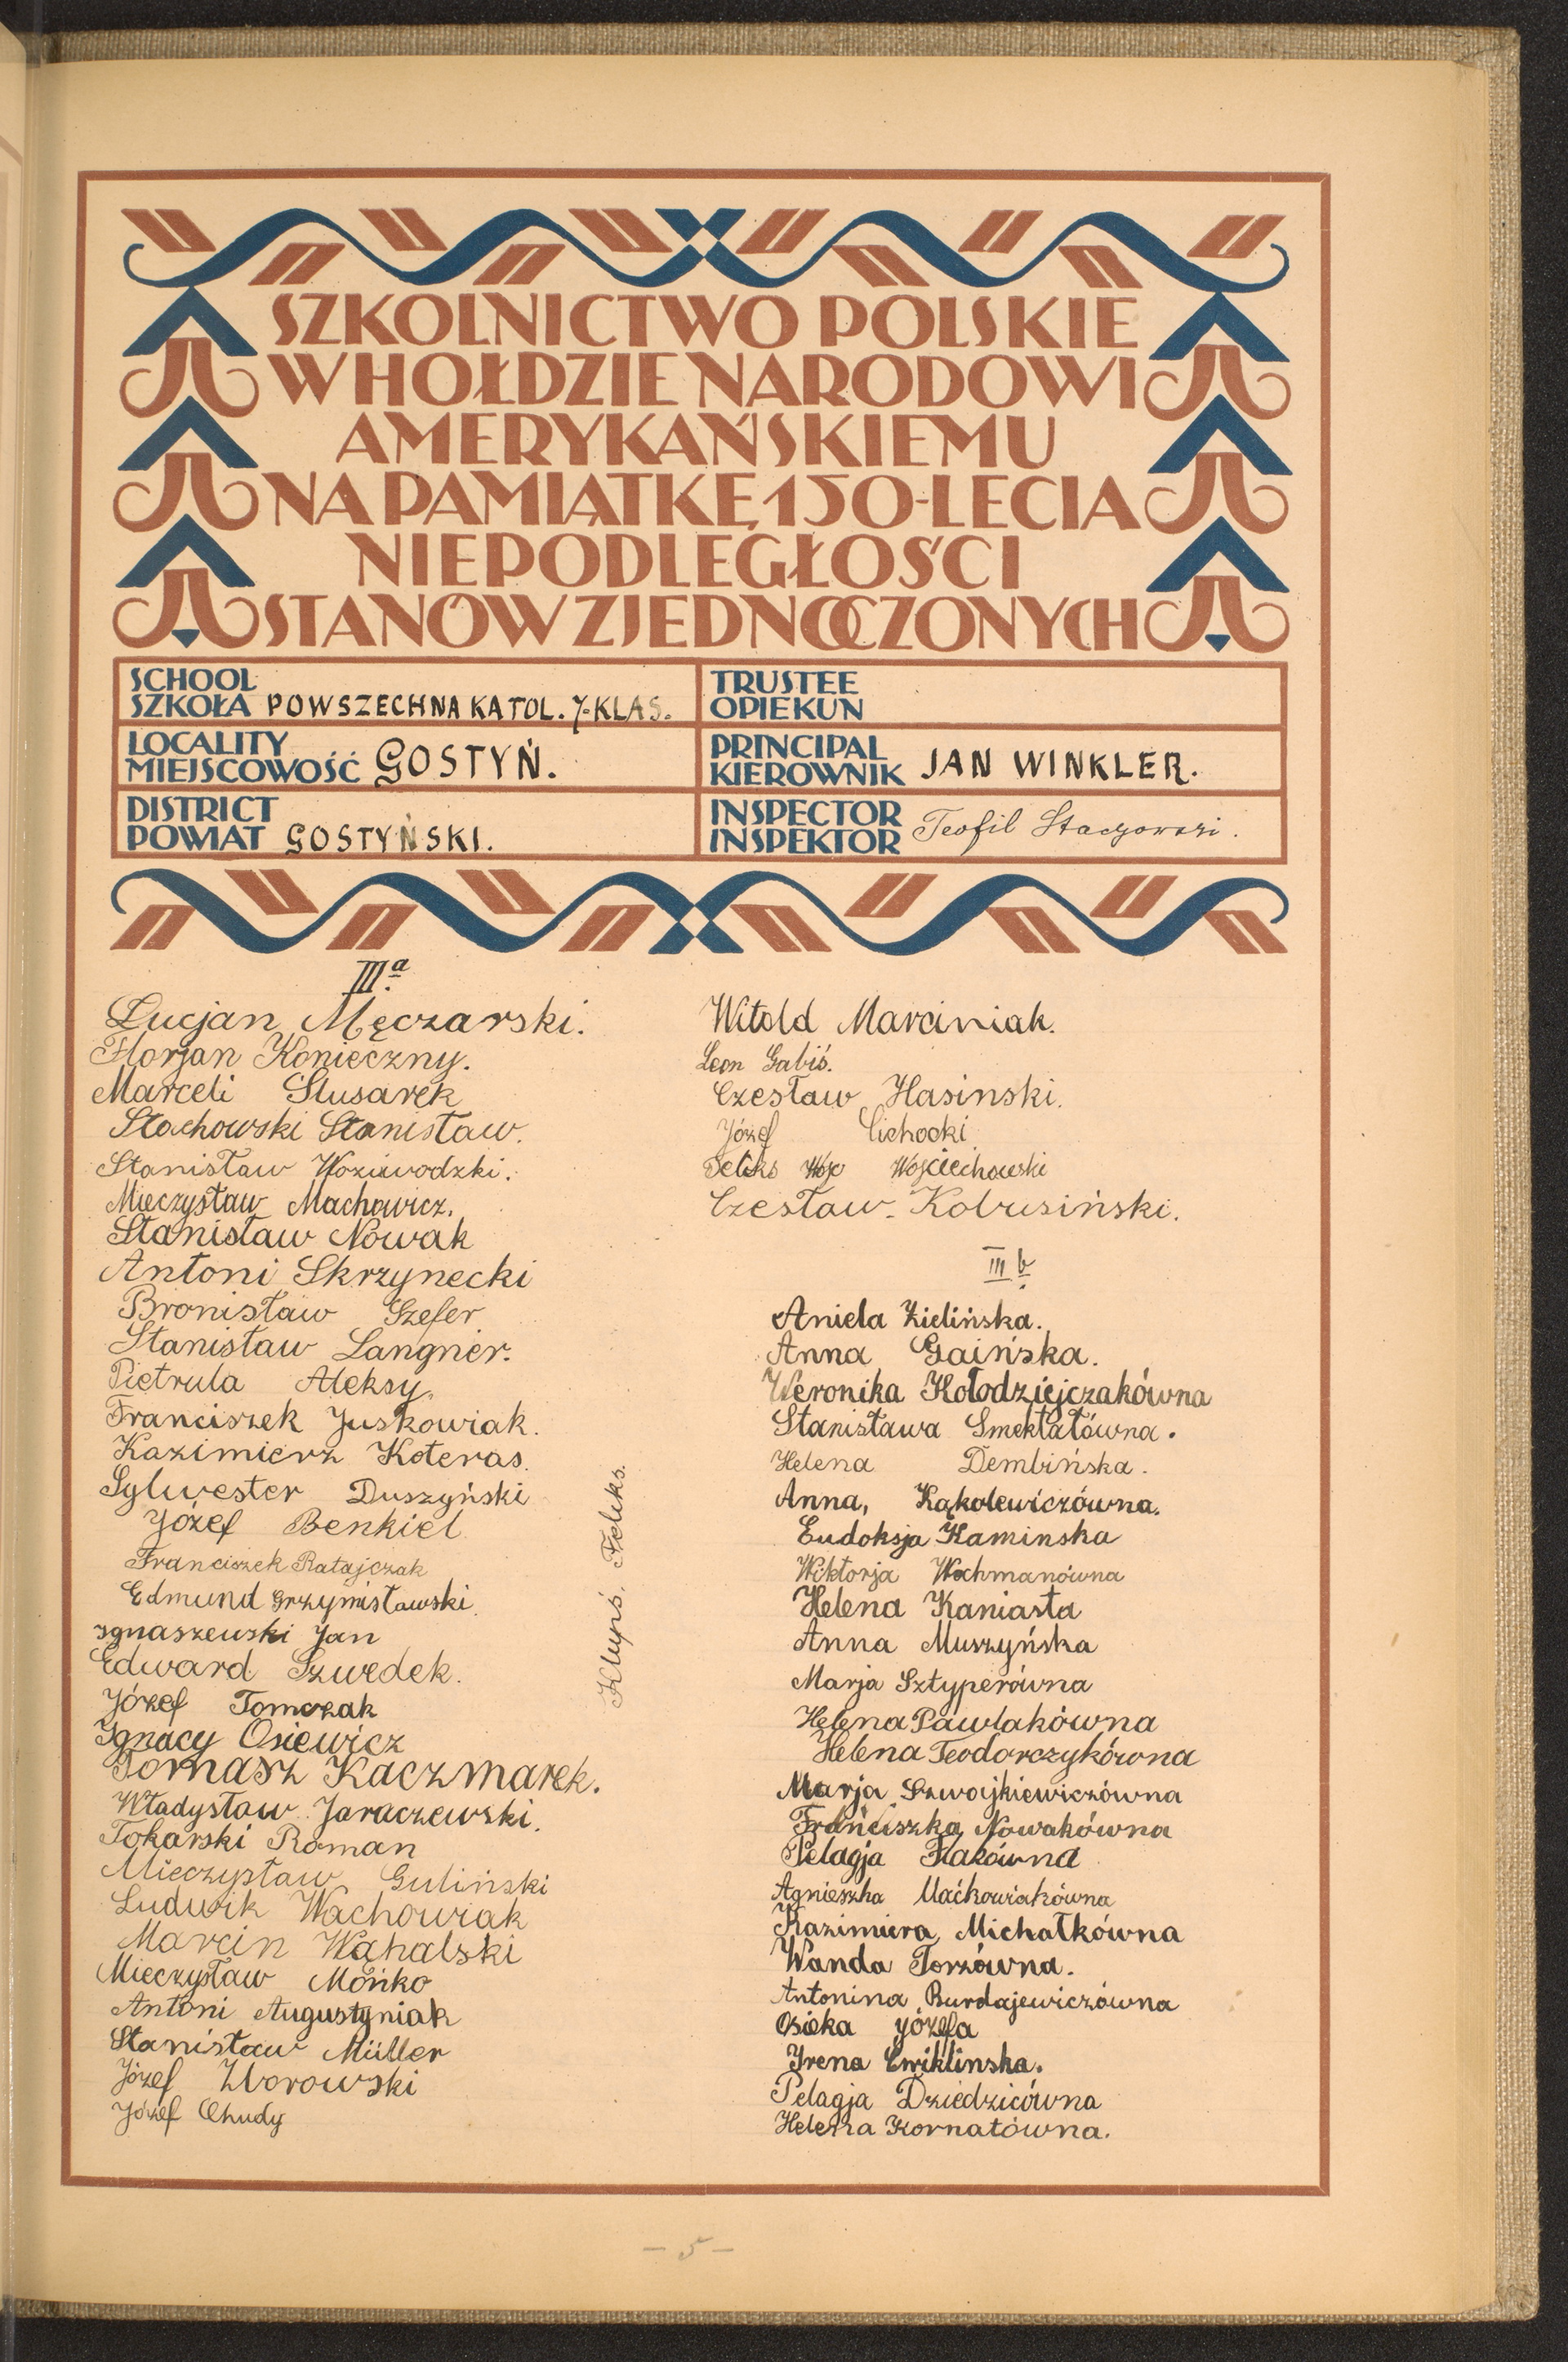 SZKOLNICTWO POLSKIE
W HOŁDZIE NARODOWI
AMERYKAŃSKIEMU
NA PAMIĄTKĘ 150-LECIA
NIEPODLEGŁOŚCI
STANÓW ZJEDNOCZONYCH
SCHOOL
SZKOŁA POWSZECHNA KATOL. 7-KLAS.
TRUSTEE
OPIEKUN
LOCALITY
MIEJSCOWOŚĆ GOSTYŃ.
PRINCIPAL
KIEROWNIK JAN WINKLER.
DISTRICT
POWIAT GOSTYŃSKI.
INSPECTOR
INSPEKTOR Teofil
IIIa.
Lucjan Męczarski.
Florjan Konieczny.
Marceli Slusarek
Stachowski Stanisław.
Stanisław Woziwodzki.
Mieczysław Machowicz.
Stanisław Nowak
Antoni Skrzynecki
Bronisław Szefer
Stanisław Langner.
Pietrula Aleksy.
Franciszek Juskowiak.
Kazimierz Koteras.
Sylwester Duszyński
Józef Benkiel
Franciszek Ratajczak
Edmund Grzymisławski
Ignaszewski Jan
Edward Szwedek.
Józef Tomczak
Ignacy Osiewicz
Tomasz Kaczmarek.
Władysław Jaraczewski.
Tokarski Roman
Mieczysław Guliński
Ludwik Wachowiak
Marcin Wąhalski
Mieczysław Mońko
Antoni Augustyniak
Stanisław Müller
Józef Zborowski
Józef Chudy
Klupś, Feliks.
Witold Marciniak.
Leon Gabiś.
Czesław Hasinski.
Józef Cichocki
Feliks Woje Wojciechowski
Czesław Kobusiński.
III b.
Aniela Zielińska.
Anna Gaińska.
Weronika Kołodziejczakówna
Stanisława Smektałówna.
Helena Dembińska.
Anna, Kąkolewiczówna.
Eudoksja Kaminska
Wiktorja Wachmanówna
Helena Kaniasta
Anna Muszyńska
Marja Sztyperówna
Helena Pawlakówna
Helena Teodorczykówna
Marja Szwojkiewiczówna
Franciszka Nowakówna
Pelagja Frakówna
Agnieszka Maćkowiakówna
Kazimiera Michałkówna
Wanda Torzówna.
Antonina Burdajewiczówna
Osieka Józefa
Irena Cwiklinska.
Pelagja Dziedzicówna
Helena Kornatówna.
- 5 -